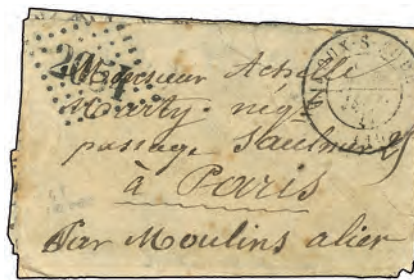 Monsieur Achille
Marty. nég
passage Saulnier 25
à Paris
Par Moulins alier